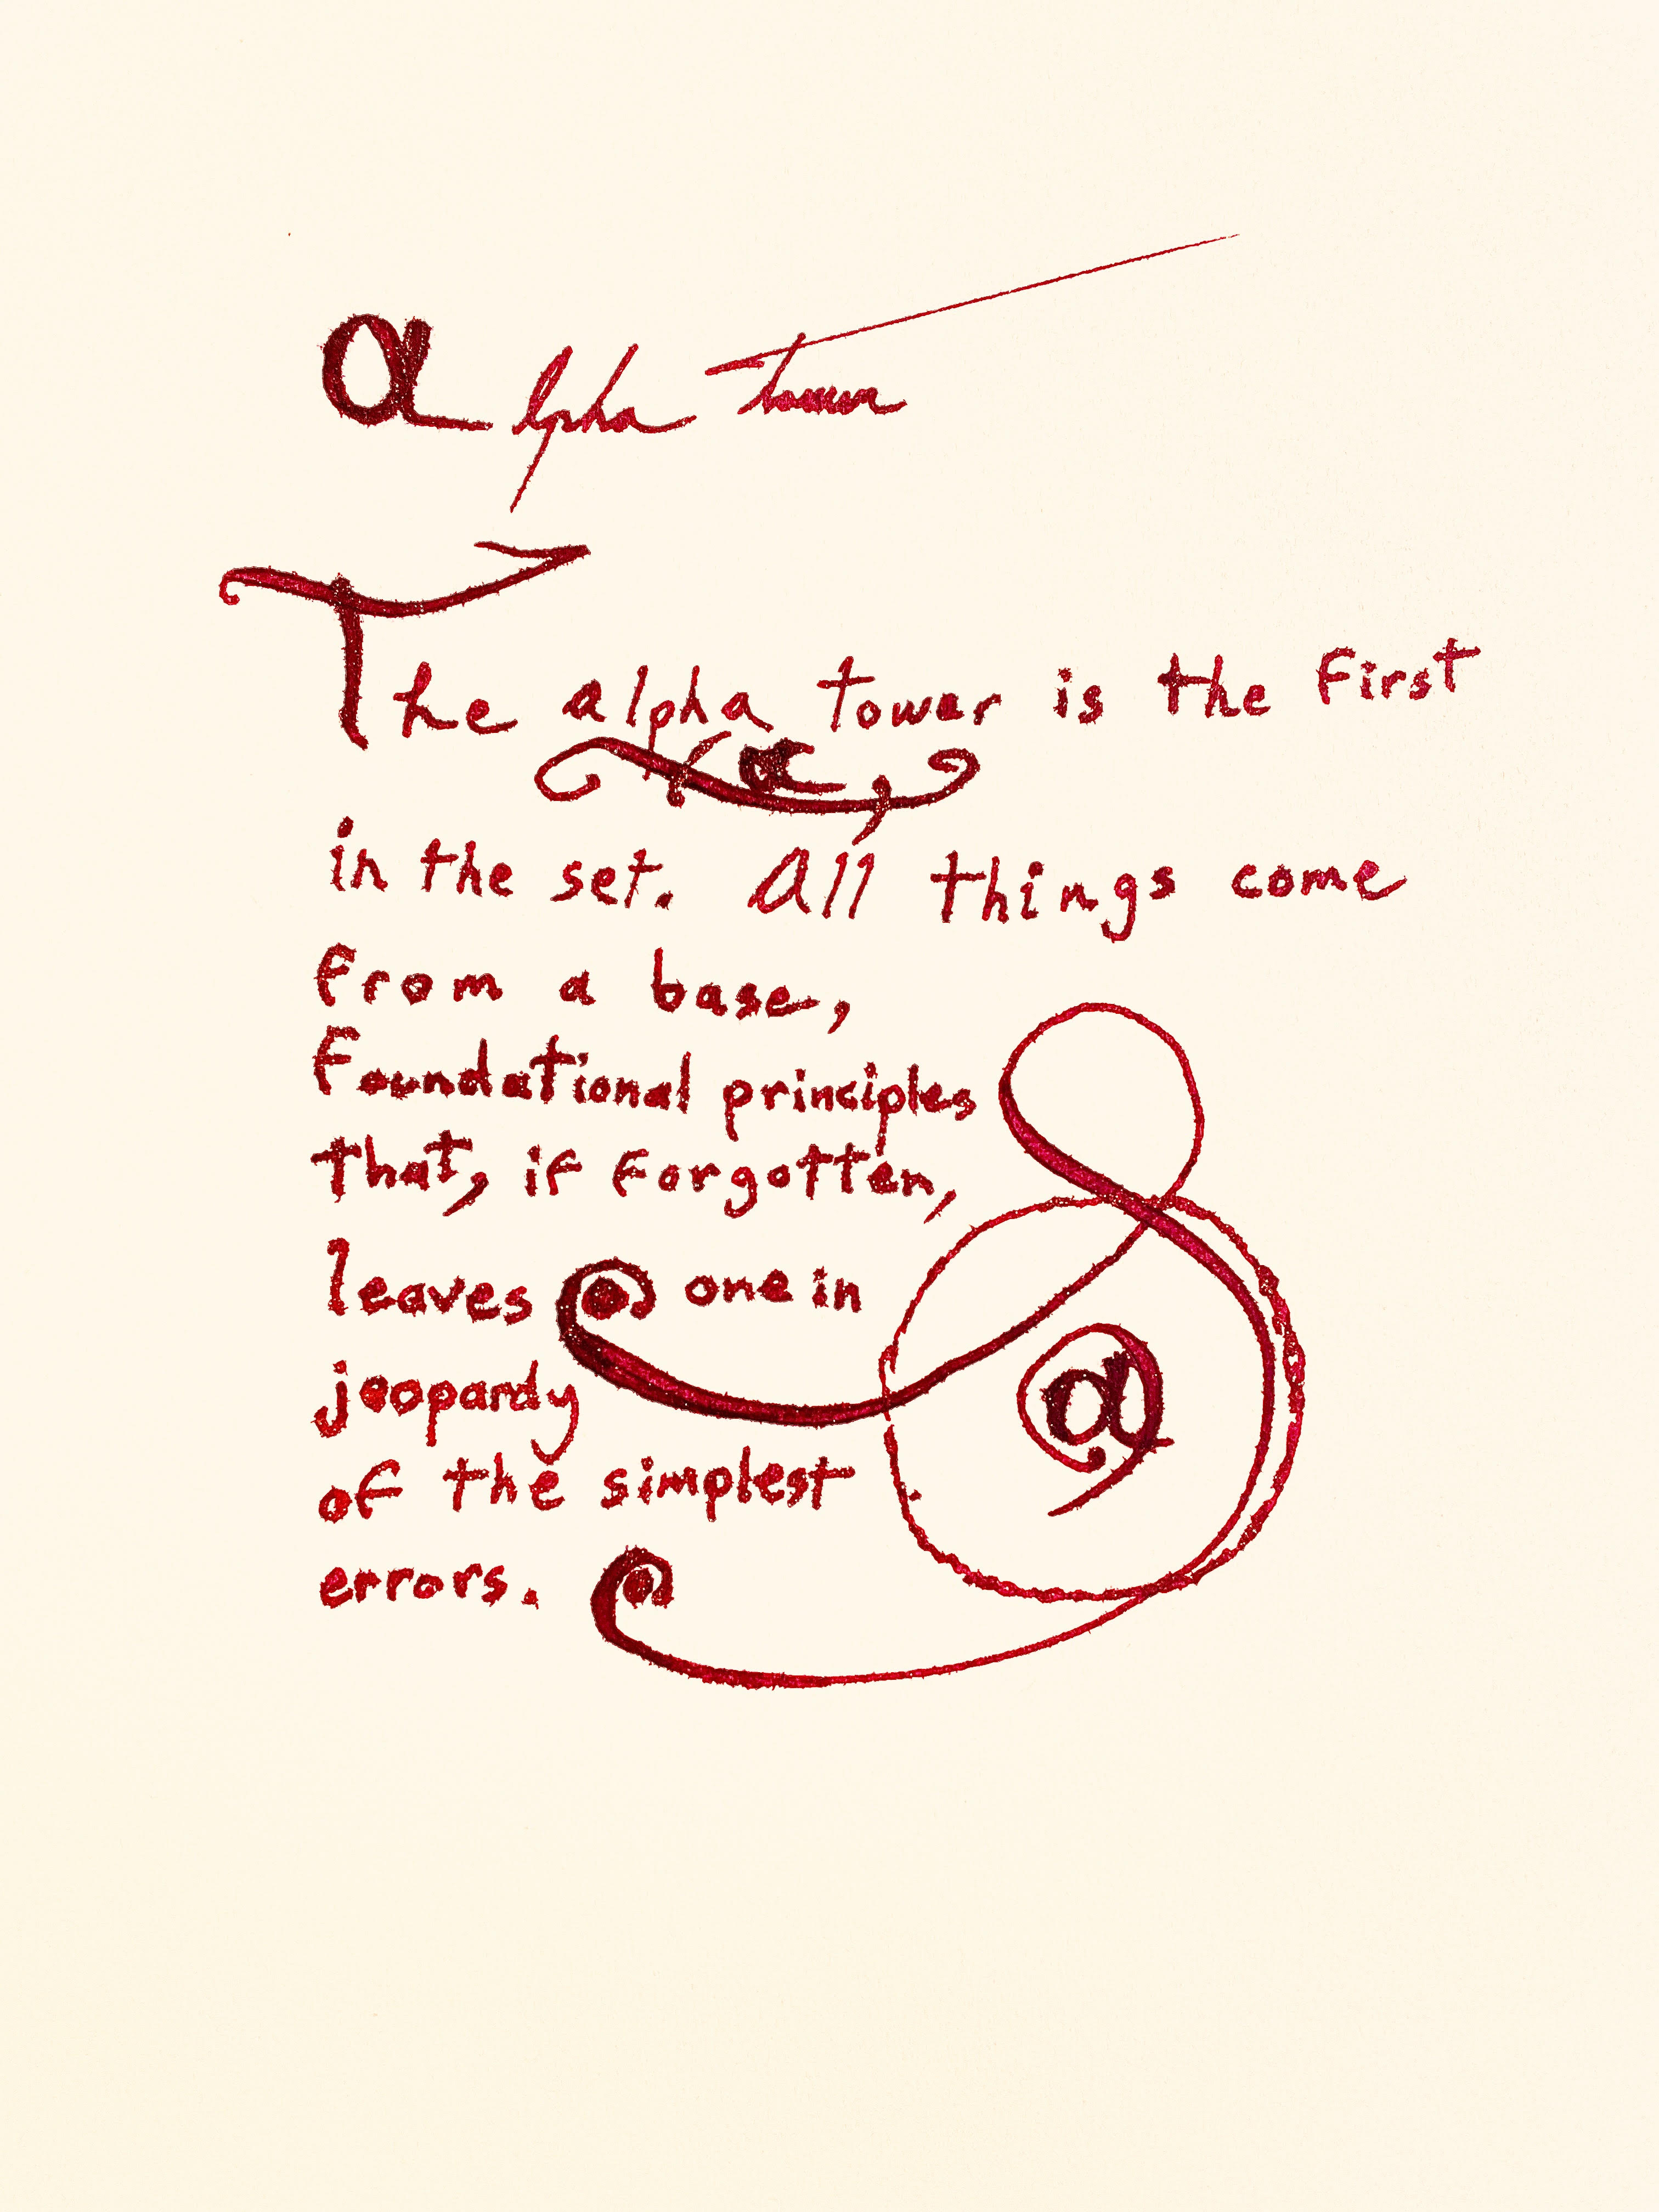 αlpha Tower
The alpha tower is the first
α
in the set. All things come
from a base,
foundational principles
that, if forgotten,
leaves one in
jeopardy
of the simplest
errors.
α